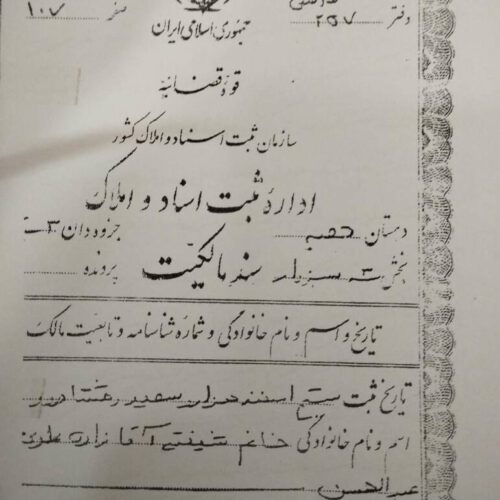 دفتر ۲۵۷ صفحه ۱۰۷
جمهوری اسلامی ایران
قوه قضائیه
سازمان ثبت اسناد و املاک کشور
اداره ثبت اسناد و املاک
دهستان حصه جزوه‌دان ۳
بخش ۳ سبزوار سند مالکیت پرونده
تاریخ و اسم و نام خانوادگی و شماره شناسنامه و تابعیت مالک
تاریخ ثبت پنج اسفند هزار سیصد هشتاد
اسم و نام خانوادگی خانم آقازاده علوی
عبدالحسن